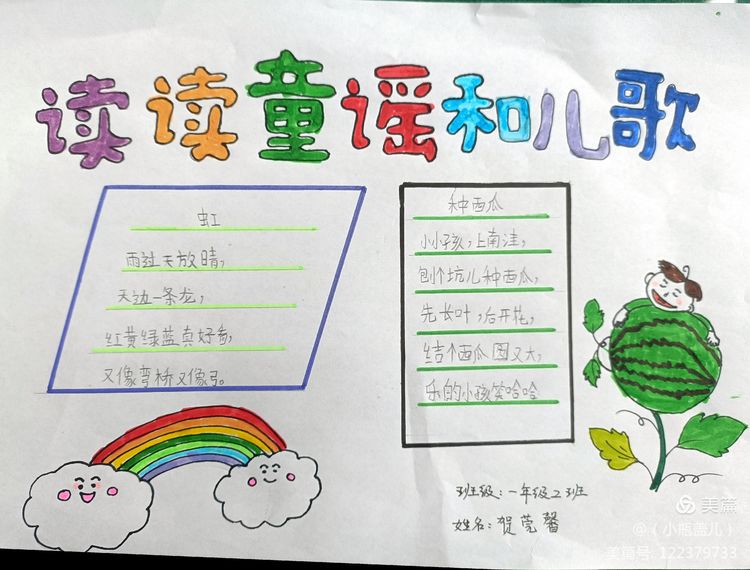 读读童谣和儿歌
虹
雨过天放晴，
天边一条龙，
红黄绿蓝真好看，
又像弯桥又像弓。
种西瓜
小小孩，上南洼，
刨个坑儿种西瓜，
先长叶，后开花，
结个西瓜圆又大，
乐的小孩笑哈哈
班级：一年级2班
姓名：贺莞馨
美篇
@（小瓶盖儿）
美篇号: 122379733